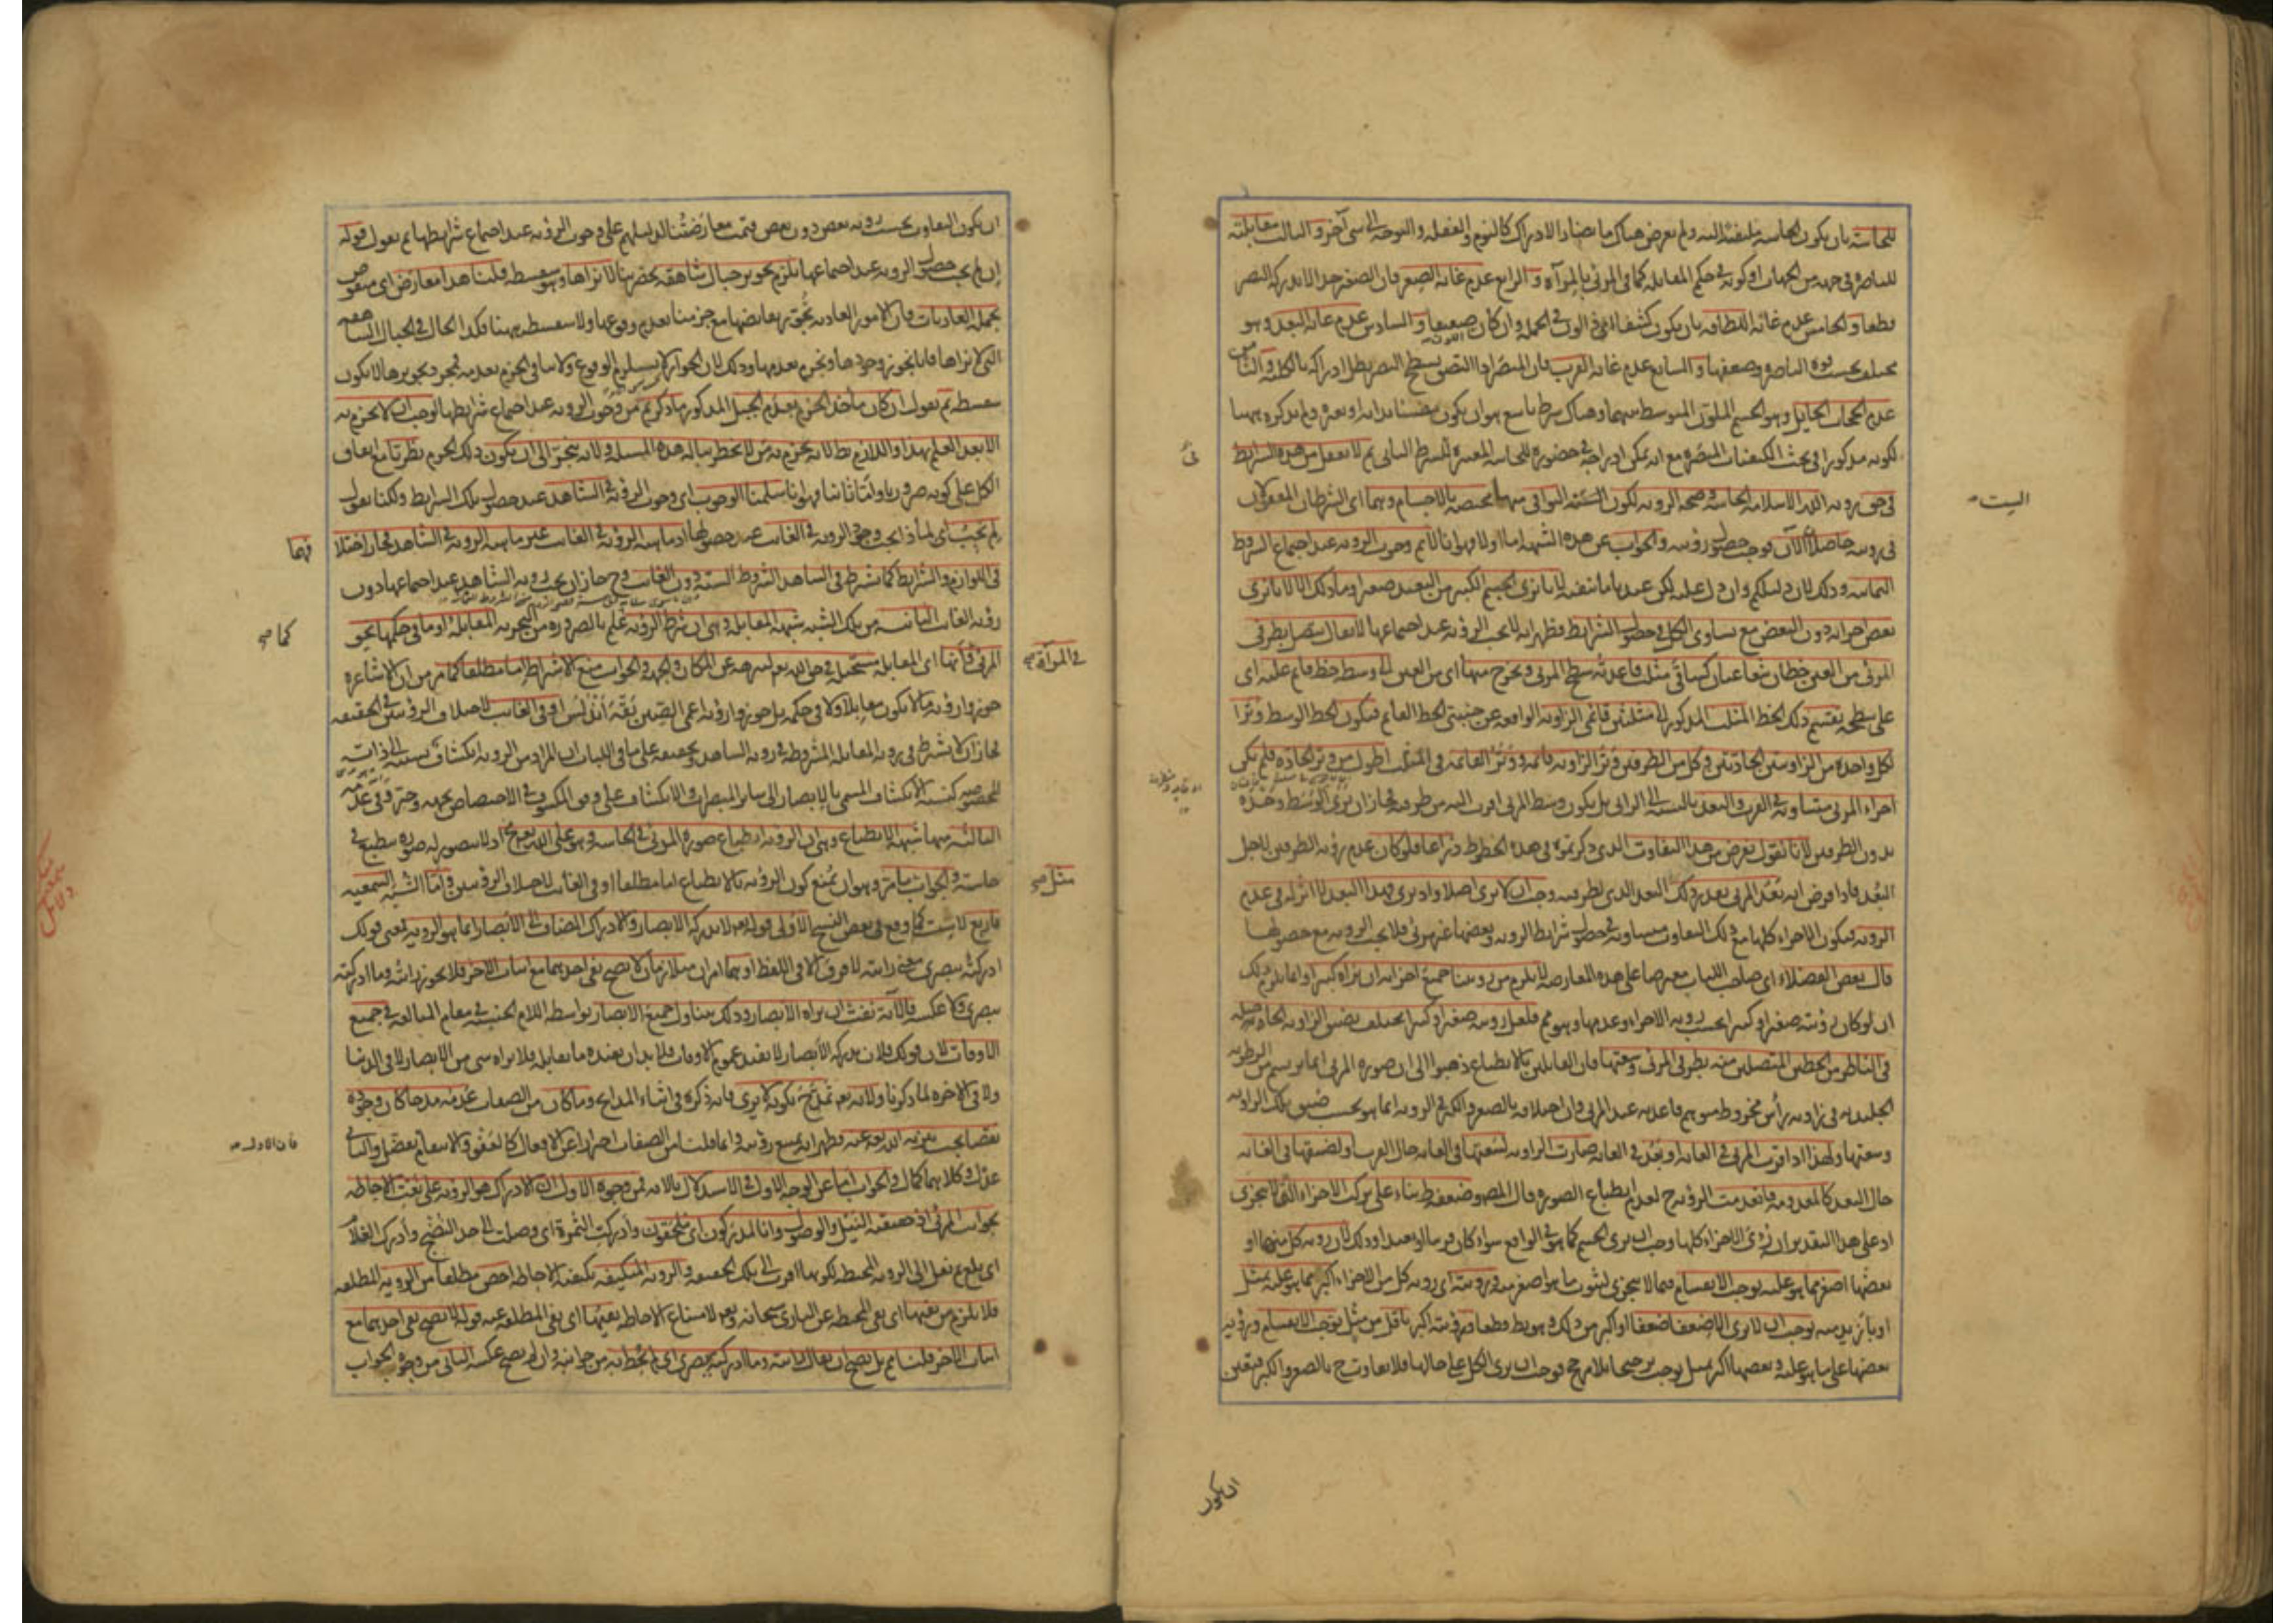 للحاسة بان يكون الحاسة ملتفتة اليه ولم يعرض هناك ما يضاد الادراك كالنوم والغفلة والتوجه الى شيء آخر والثالث مقابلته
للباصرة في جهة من الجهات او كونه في حكم المقابلة كما في المرئي بالمرآة والرابع عدم غاية الصغر فان الصغير جدا لا يدركه البصر
قطعا والخامس عدم غاية اللطافة بان يكون كثيفا اي ذا لون في الجملة وان كان ضعيفا والسادس عدم غاية البعد وهو
مختلف بحسب قوة الباصرة وضعفها والسابع عدم غاية القرب فان المبصر اذا التصق بسطح البصر بطل ادراكه بالكلية والثامن
عدم الحجاب الحايل وهو الجسم الملون المتوسط بينهما وهناك شرط تاسع هو ان يكون مضيئا بذاته او بغيره ولم يذكره ههنا
لكونه مذكورا في بحث الكيفيات المبصرة مع انه يمكن ادراجه في حضوره للحاسة المعبرة الشرط الثاني ثم لا نعقل من هذه الشرايط
في حق رؤية الله الا سلامة الحاسة وصحة الرؤية لكون الستة البواقي منها مختصة بالاجسام وهما اي الشرطان المعقولان
في رؤيته حاصلان الآن فوجب حصول رؤيته والجواب عن هذه الشبهة اما اولا فهو انا لا نم وجوب الرؤية عند اجتماع الشروط
الثمانية وذلك لان دليلكم وان دل عليه لكن عندنا ما ينفيه لانا نرى الجسم الكبير من البعيد صغيرا وما ذلك الا لانا نرى
بعض اجزائه دون البعض مع تساوي الكل في حصول الشرايط فظهر انه لا تجب الرؤية عند اجتماعها لا يقال يتصل بطرفي
المرئي من العين خطان شعاعيان كساقي مثلث قاعدته سطح المرئي ويخرج منها اي من العين الى وسطه خط قايم عليه اي
على سطحه يقسم ذلك الخط المثلث المذكور الى مثلثين قائمي الزاوية الواقعة عن جنبتي الخط القايم فيكون الخط الوسط وترا
لكل واحدة من الزاويتين الحادتين وكل من الطرفين وتر الزاوية قائمة ووتر القائمة في المثلث اطول من وتر الحادة فلم يكن
اجزاء المرئي متساوية في القرب والبعد بالنسبة الى الرائي بل يكون وسط المرئي اقرب اليه من طرفيه فجاز ان يرى الوسط وحده
بدون الطرفين لانا نقول نفرض من هذا التفاوت الذي ذكرتموه في هذه الخطوط ذراعا فلو كان عدم رؤية الطرفين لاجل
البعد فاذا فرض انه بعد المرئي بعد ذلك البعد الذي لطرفيه وجب ان لا يرى اصلا واذ يرى فهذا البعد لا اثر له في عدم
الرؤية فيكون الاجزاء كلها مع ذلك التفاوت متساوية في حصول شرايط الرؤية وبعضها غير مرئي فلا تجب الرؤية مع حصولها
قال بعض الفضلاء اي صاحب اللباب معترضا على هذه المعارضة لا يلزم من رؤيتنا جميع اجزائه ان نراه كبيرا وانما يلزم ذلك
ان لو كان رؤيته صغيرا وكبيرا بحسب رؤية الاجزاء وعدمها وهو مم فلعل رؤيته صغيرا وكبيرا تختلف بضيق الزاوية الحاصلة
في الناظر من الخطين المتصلين منه بطرفي المرئي وسعتها فان القايلين بالانطباع ذهبوا الى ان صورة المرئي انما يرتسم من الرطوبة
الجليدية في زاوية رأس مخروط متوهم قاعدته عند المرئي وان اختلافه بالصغر والكبر في الرؤية انما هو بحسب ضيق تلك الزاوية
وسعتها ولهذا اذا قرب المرئي في الغاية او بعد في الغاية صارت الزاوية لسعتها في الغاية حال القرب ولضيقها في الغاية
حال البعد كالمعدومة فانعدمت الرؤية ح لعدم انطباع الصورة قال المصـ وضعفه ظ بناء على تركب الاجزاء التي لا يتجزى
اذ على هذا التقدير ان رؤى الاجزاء كلها وجب ان يرى الجسم كما هو في الواقع سواء كان قريبا او بعيدا وذلك لان رؤية كل منها او
بعضها اصغر مما هو عليه يوجب الانقسام فيما لا يتجزى لثبوت ما هو اصغر منه ورؤيته اي رؤية كل من الاجزاء اكبر مما هو عليه بمثل
او بازيد منه يوجب ان لا يرى الا ضعفا ضعفا او اكبر من ذلك وهو بط قطعا ورؤيته اكبر باقل من مثل يوجب الانقسام ورؤية
بعضها على ما هو عليه وبعضها اكبر بمثل يوجب ترجيحا بلا مرجح فوجب ان يرى الكل على حالها فلا تفاوت ح بالصغر والكبر فتعين
البتة
ان يكون
ان يكون التفاوت بحسب رؤية بعض دون بعض فتمت معارضتنا لدليلهم على وجوب الرؤية عند اجتماع شرايطها ثم نقول قوله
ان لم يجب حصول الرؤية عند اجتماعها يلزم تجويز جبال شاهقة بحضرتنا لا نراها وهو سفسطة قلنا هذا معارض اي منقوض
بجملة العاديات فان الامور العادية تجوز نقايضها مع جزمنا بعدم وقوعها ولا سفسطة ههنا فكذا الحال في الجبال الشاهقة
التي لا نراها فانا نجوز وجودها ونجزم بعدمها وذلك لان الجواز لا يستلزم الوقوع ولا ينافي الجزم بعدمه فمجرد تجويزها لا يكون
سفسطة ثم نقول ان كان مأخذ الجزم بعدم الجبل المذكور ما ذكرتم من وجوب الرؤية عند اجتماع شرايطها لوجب ان لا نجزم به
الا بعد العلم بهذا واللازم بط لانه يجزم به من لا يخطر بباله هذه المسئلة ولانه ينجر الى ان يكون ذلك الجزم نظريا مع اتفاق
الكل على كونه ضروريا ولنا ثانيا فهو انا سلمنا الوجوب اي وجوب الرؤية في الشاهد عند حصول تلك الشرايط ولكنا نقول
لم يجب اي لماذا يجب وجوب الرؤية في الغايب عند حصولها اذ ماهية الرؤية في الغايب غير ماهية الرؤية في الشاهد فجاز اختلا
فهما
في اللوازم والشرايط كما يشترط في الشاهد الشروط الستة دون الغايب وح جاز ان يجب رؤية الشاهد عند اجتماعها دون
رؤية الغايب الثانية من تلك الشبه شبهة المقابلة وهي ان شرط الرؤية علم بالضرورة من التجربة المقابلة او ما في حكمها نحو
كما صح
المرئي فانها اي المقابلة مستحيلة في حق الله تعالى لتنزهه عن المكان والجهة والجواب منع الاشتراط اما مطلقا كما مر من ان الاشاعرة
في المرآة صح
جوزوا رؤية ما لا يكون مقابلا ولا في حكمه بل جوزوا رؤية اعمى الصين بقة اندلس او في الغايب لاختلاف الرؤيتين في الحقيقة
فجاز ان لا يشترط في رؤيته المقابلة المشروطة في رؤية الشاهد وتحقيقه على ما في اللباب ان المراد من الرؤية انكشاف نسبته الى ذاته
المخصوصة كنسبة الانكشاف المسمى بالابصار الى ساير المبصرات والانكشاف على وفق المكشوف في الاختصاص بجهة وحيز وفي عدمه
الثالثة منها شبهة الانطباع وهي ان الرؤية انطباع صورة المرئي في الحاسة وهو على الله تعالى مح اذ لا يتصور له صورة تنطبع في
حاسة والجواب ما مر وهو ان نمنع كون الرؤية بالانطباع اما مطلقا او في الغايب لاختلاف الرؤيتين واما الشبه السمعية
مثل صح
فاربع لا ست كما وقع في بعض النسخ الاولى قوله تعالى لا تدركه الابصار والادراك المضاف الى الابصار انما هو الرؤية فمعنى قولك
ادركته ببصري معنى رأيته لا فرق الا في اللفظ او هما امران متلازمان لا يصح نفي احدهما مع اثبات الآخر فلا يجوز رأيته وما ادركته
ببصري ولا عكسه فالآية نفت ان يراه الابصار وذلك يتناول جميع الابصار بواسطة اللام الجنسية في مقام المبالغة في جميع
الاوقات لان قولك فلان تدركه الابصار لا يفيد عموم الاوقات فلا بد ان يفيده ما يقابله فلا يراه شيء من الابصار لا في الدنيا
ولا في الآخرة لما ذكرنا ولانه تعالى تمدح بكونه لا يرى فانه ذكره في اثناء المدايح وما كان من الصفات عدمه مدحا كان وجوده
نقصا يجب تنزيه الله تعالى عنه فظهر انه يمتنع رؤيته وانما قلنا من الصفات احترازا عن الافعال كالعفو والانتقام
فان الاول صح
عدل وكلاهما كمال والجواب اما عن الوجه الاول في الاستدلال بالآية فمن وجوه الاول ان الادراك هو الرؤية على نعت الاحاطة
بجوانب المرئي اذ حقيقته النيل والوصول وانا لمدركون اي ملحقون وادركت الثمرة اي وصلت الى حد النضج وادرك الغلام
اي بلغ ثم نقل الى الرؤية المحيطة لكونها اقرب الى تلك الحقيقة والرؤية المتكيفة بكيفية الاحاطة اخص مطلقا من الرؤية المطلقة
فلا يلزم من نفيها اي نفي المحيطة عن الباري سبحانه وتعالى لامتناع الاحاطة نفيها اي نفي المطلقة عنه قوله لا يصح نفي احدهما مع
اثبات الآخر قلنا مم بل يصح ان يقال رأيته وما ادركه بصري اي لم يحط به من جوانبه وان لم يصح عكسه الثاني من وجوه الجواب